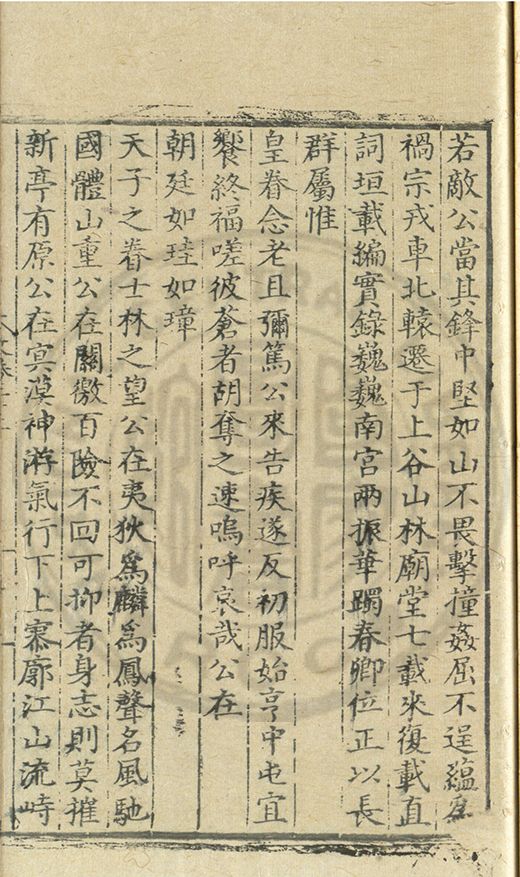 若敵公當其鋒中堅如山不畏擊撞姦屈不逞蘊
禍宗戎車北轅遷于上谷山林廟堂七載來復載直
詞垣載編實錄巍巍南宮兩振華躅春卿位正以長
群屬惟
皇眷念老且彌篤公來告疾遂反初服始亨中屯宜
饗終福嗟彼蒼者胡奪之速嗚呼哀哉公在
朝廷如珪如璋
天子之眷士林之望公在夷狄為麟為鳳聲名風馳
國體山重公在關徼百險不回可抑者身志則莫摧
新亭有原公在冥漠神游氣行下上寥廓江山流峙